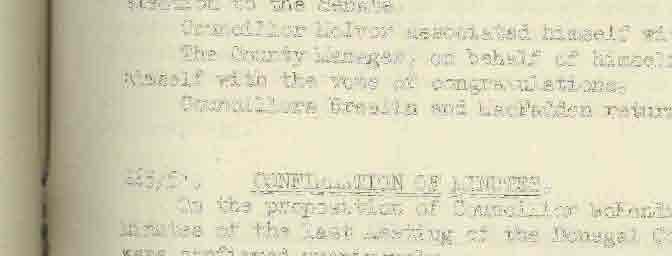 to the Senate.
Councillor McIvor associated himself wi
The County Manager, on behalf of himsel
himself with the vote of congratulations.
Councillors Breslin and MacFadden return
CONFIRMATION OF MINUTES.
On the proposition of Councillor
Minutes of the last meeting of the Donegal Co
were confirmed